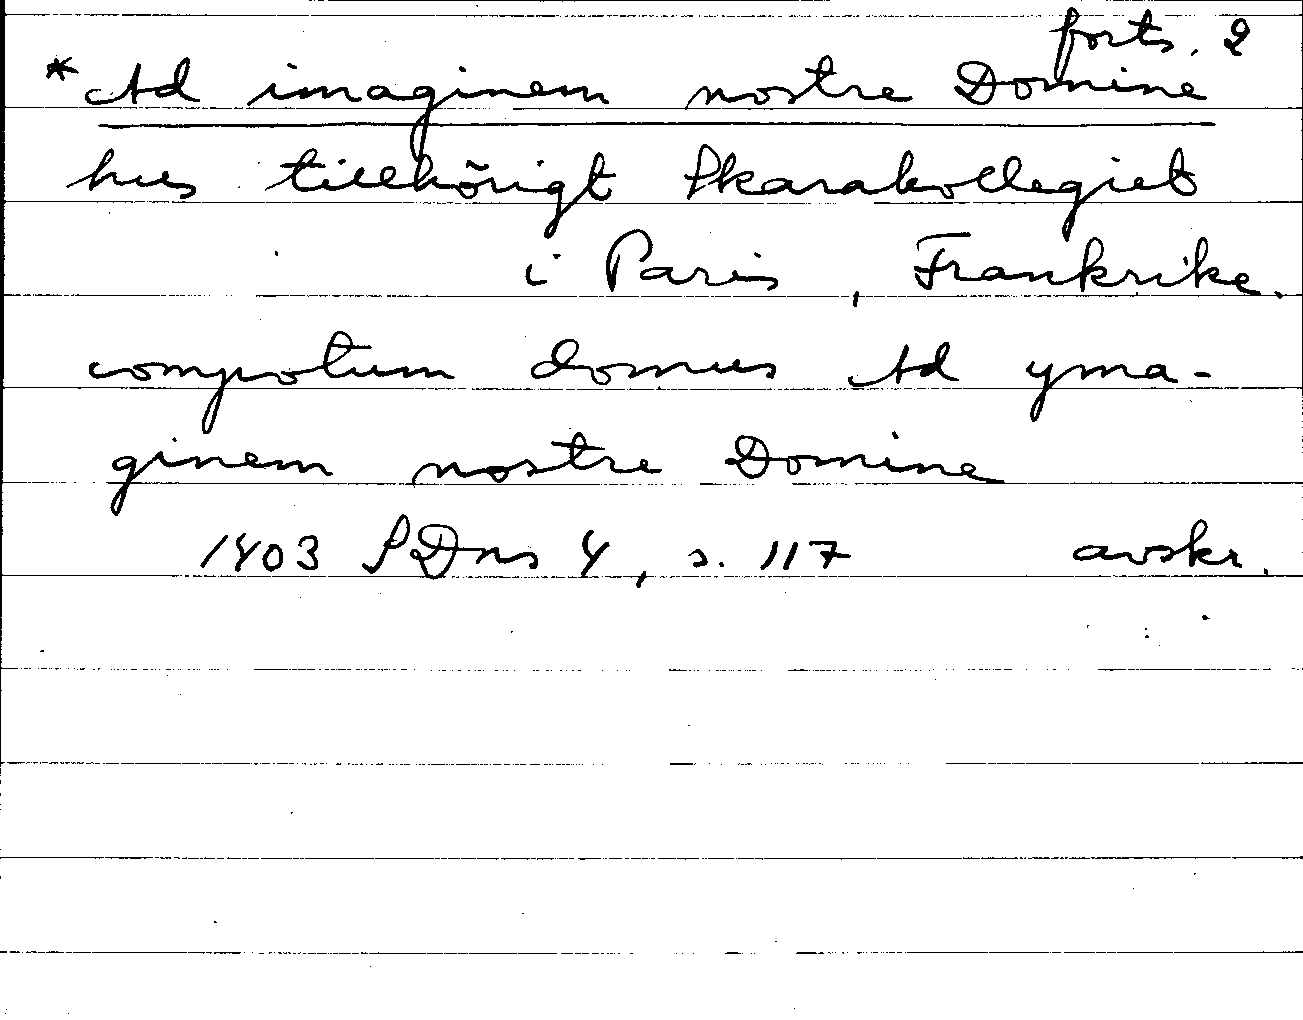 forts. 2
* Ad imaginem nostre Domine
hus tillhörigt Skarakollegiet
i Paris, Frankrike.
compotum domus Ad yma-
ginem nostre Domine
1403 SDns 4, s. 117 avskr.